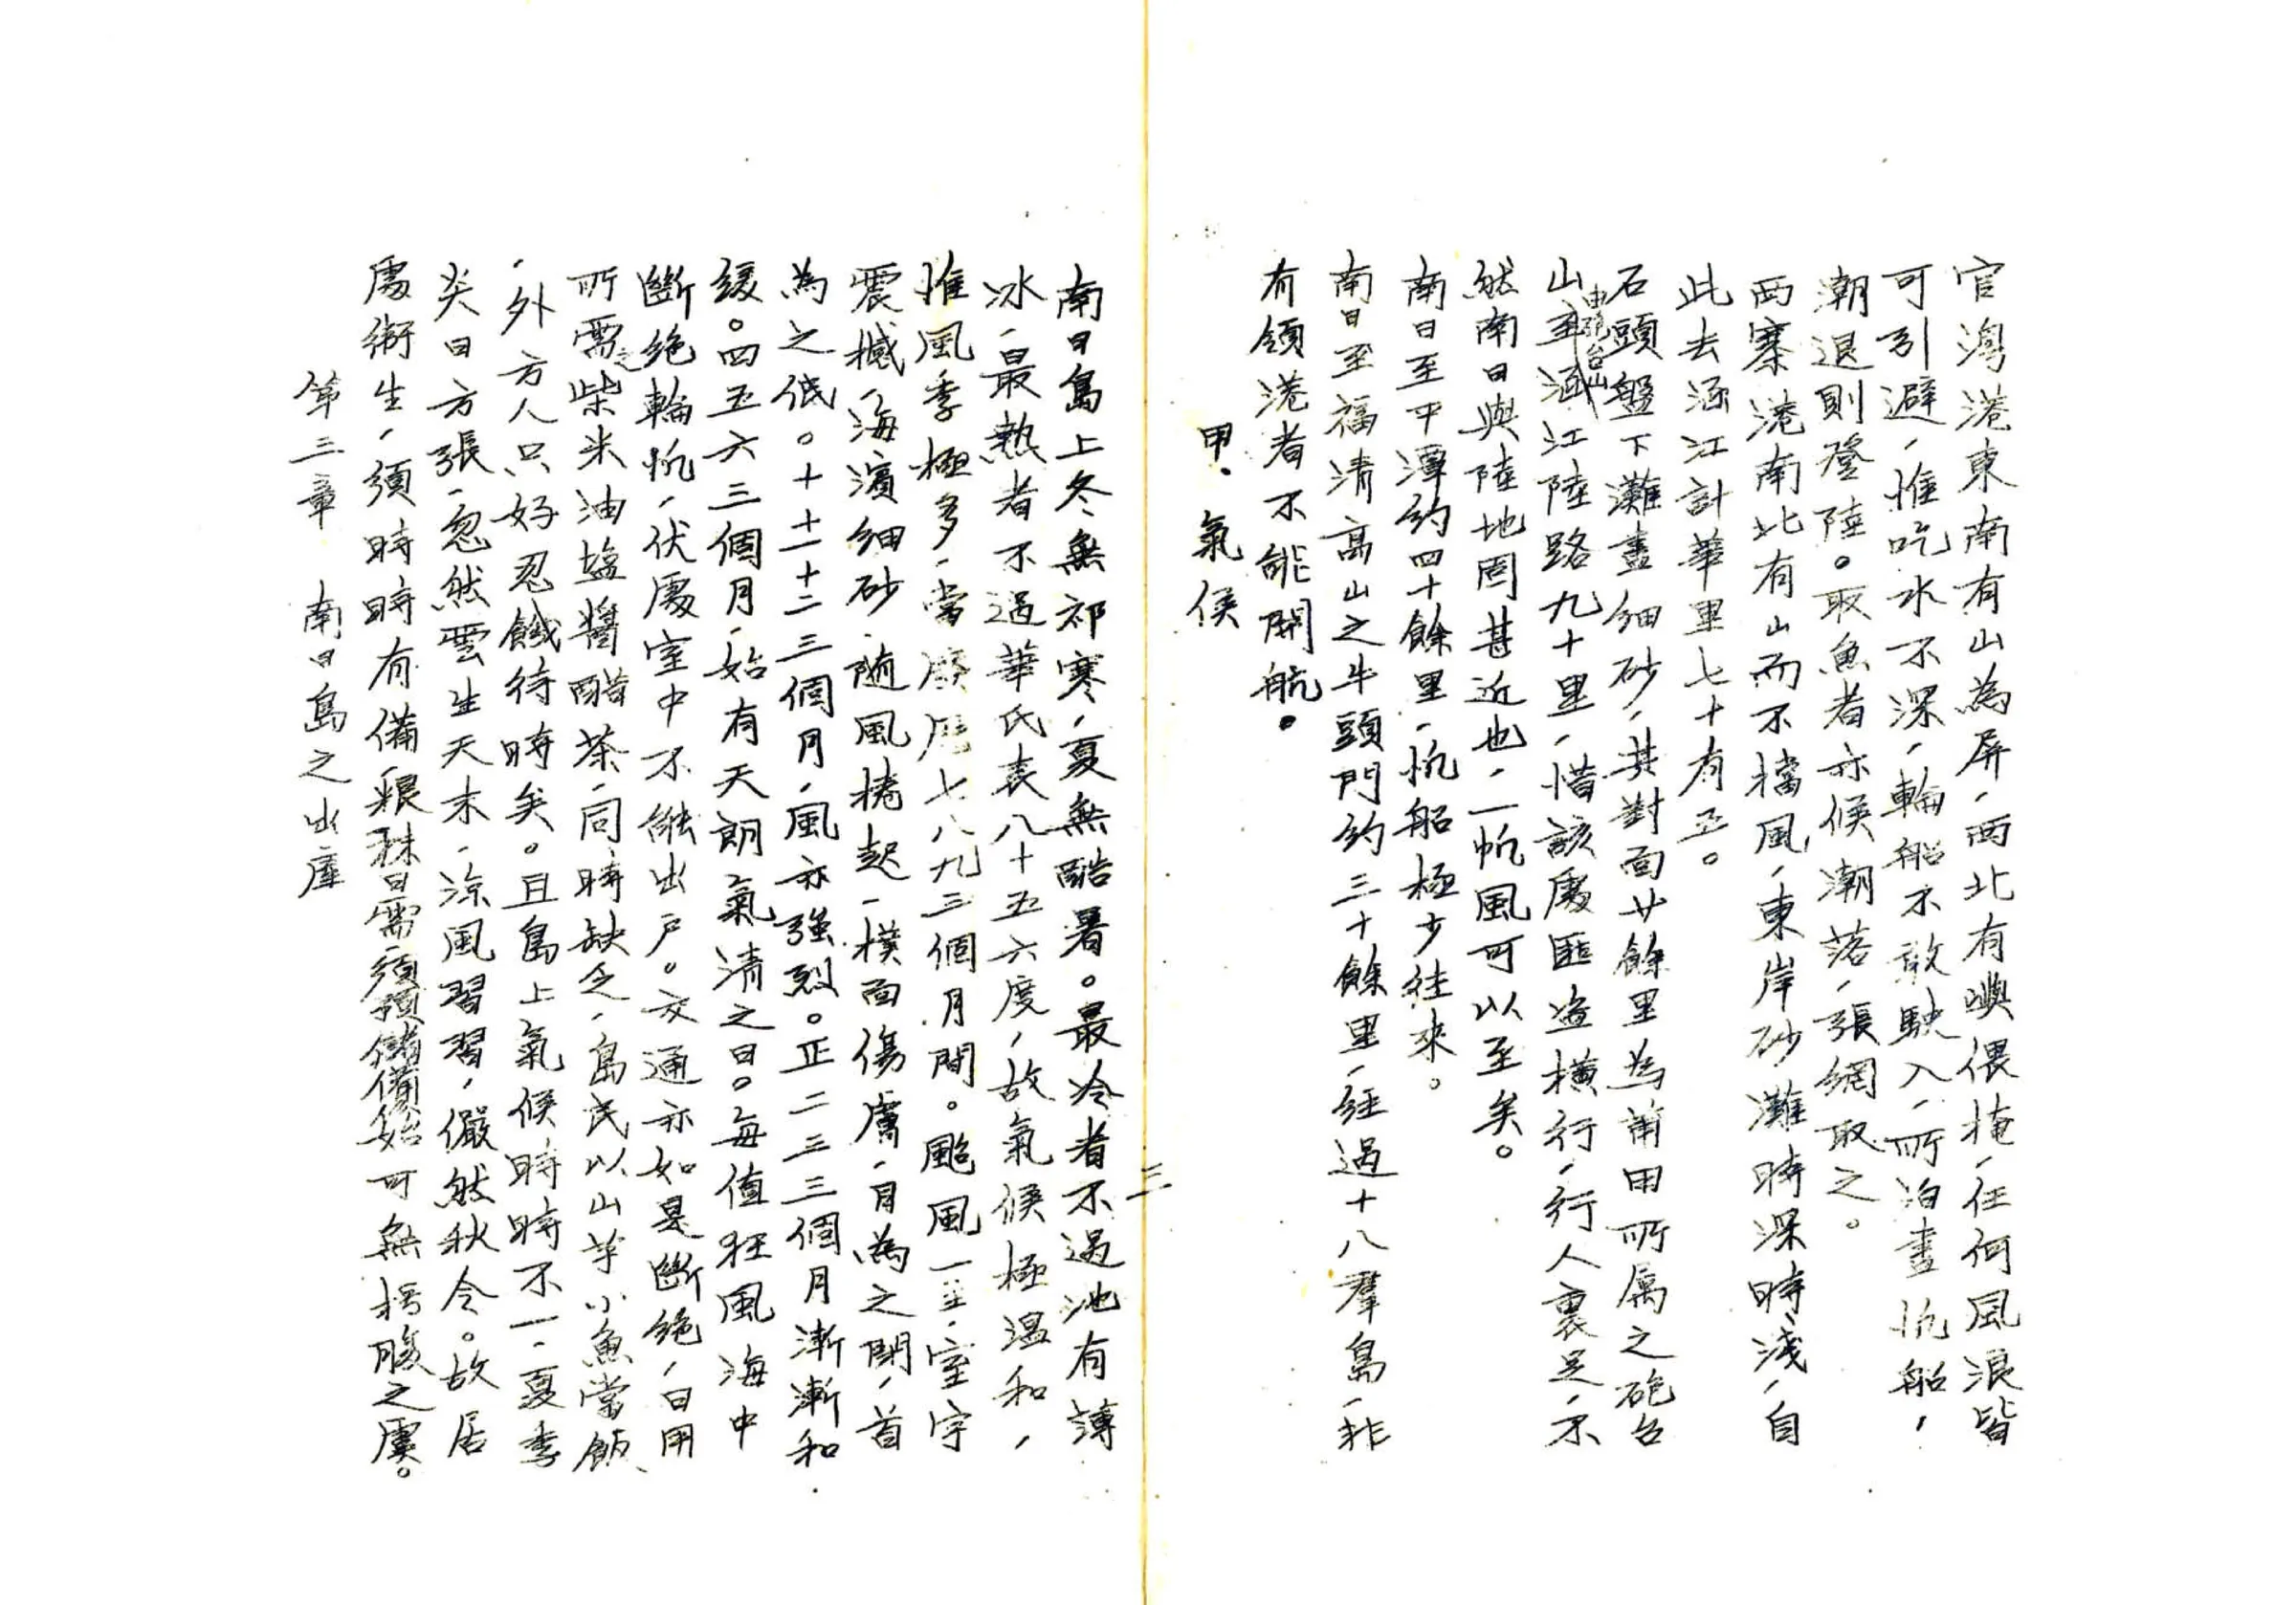 官灣港東南有山為屏，西北有嶼偎掩，任何風浪皆
可引避，惟吃水不深，輪船不敢駛入，所泊盡帆船，
潮退則登陸。取魚者亦候潮落，張網取之。
西寨港南北有山而不擋風，東岸砂灘時深時淺，自
此去涵江計華里七十有五。
石頭盤下灘盡細砂，其對面廿餘里為莆田所属之砲台
山，至涵江陸路九十里，惜該處匪盗橫行，行人裹足，不
由砲台山
然南日與陸地固甚近也，一帆風可以至矣。
南日至平潭約四十餘里，帆船極少往來。
南日至福清高山之牛頭門約三十餘里，經過十八羣島，非
有領港者不能開航。
甲、氣候
三
南日島上冬無祁寒，夏無酷暑。最冷者不過池有薄
冰，最熱者不過華氏表八十五六度，故氣候極溫和，
惟風季極多，當廢曆七八九三個月間。颱風一至，室宇
震撼，海濱細砂隨風捲起，撲面傷膚，目為之閉，首
為之低。十十一十二三個月，風亦強烈。正二三三個月漸漸和
緩。四五六三個月，始有天朗氣清之日。每值狂風海中
斷絶輪帆，伏處室中不能出户。交通亦如是斷絶，日用
所需之柴米油塩醬醋茶，同時缺乏，島民以山芋小魚當飯
，外方人只好忍餓待時矣。且島上氣候時時不一，夏季
炎日方張，忽然雲生天末，涼風習習，儼然秋令。故居
處衛生，須時時有備，粮秣日需，須預儲備始可無枵腹之虞。
第三章　南日島之出產